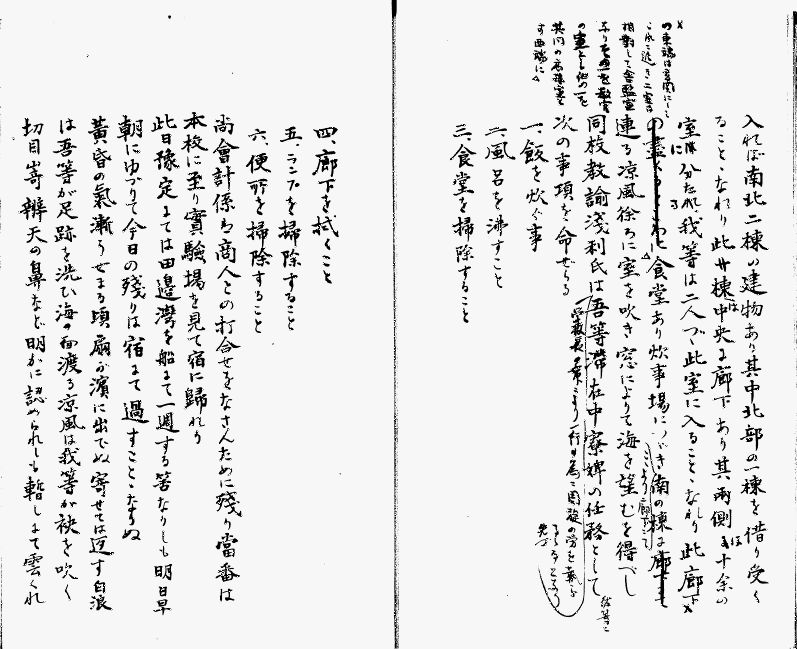 入れば南北二棟の建物あり其中北部の一棟を借り受く
ることゝなれり此廾棟は中央に廊下あり其両側には十余の
室に分たる我等は二人づゝ此室に入ることゝなれり此廊下
の東端は玄関にして
これに近き二室は
相対して舎監室
なり
の室とし他の一を
す西端に
の尽くる食堂あり炊事場につゞき南の棟は廊下も
こより廊下にて
連る涼風徐ろに室を吹き窓によりて海を望むを得べし
同校教諭浅利氏は吾等滞在中寮婢の任務として
学校長の命により一行の為に周旋の労を執
先づ
我等に
次の事項を命せらる
一、飯を炊ぐ事
二、風呂を沸すこと
三、食堂を掃除すること
四、廊下を拭くこと
五、ランプを掃除すること
六、便所を掃除すること
尚会計係は商人との打合せをなさんために残り当番は
本校に至り実験場を見て宿に帰れり
此日豫定にては田邉湾を船にて一週する筈なりしも明日早
朝にゆづりて今日の残りは宿にて過すことゝなりぬ
黄昏の気漸くせまる頃扇が濱に出でぬ寄せては返す白浪
は吾等が足跡を洗ひ海の面渡る涼風は我等が袂を吹く
切目崎辨天の鼻など明かに認められしも暫しにて雲くれ